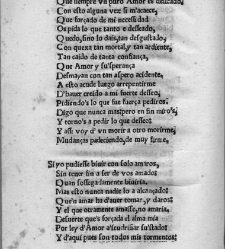 Que siempre vn puro Amor es
Con esto alguna vez si m'acaece,
Que forçado de mi necessidad
Os pida lo que tanto e desseado,
Quedo, sino lo dais, tan desgustado,
Con quexa tan mortal, y tan ardiente,
Tan caido de tanta confiança,
Que Amor y su'sperança
Desmayan con tan aspero acidente,
A esto acude luego arrepentirme
D'hauer creido a mi fuerte desseo;
Pidiendo's lo que fue fuerça pediros.
Digo que nunca mas
Y torno's a pedir lo que desseo:
Y assi voy d'vn morir a otro morirme,
Mudanças padeciendo, de muy firme.
Si yo pudiesse biuir con solo amaros,
Sin tener fin a ser de vos amado;
Quan sossegadamente biuiria.
Mas esto nunca nadie lo a alcançado:
Qu'en amar ha d'auer tomar, y daros:
Y el que otramente amasse, no amaria,
Desuerte que's forçada el alma mia
Por ley d'Amor
Y d'aqui pues son todos mis tormentos;